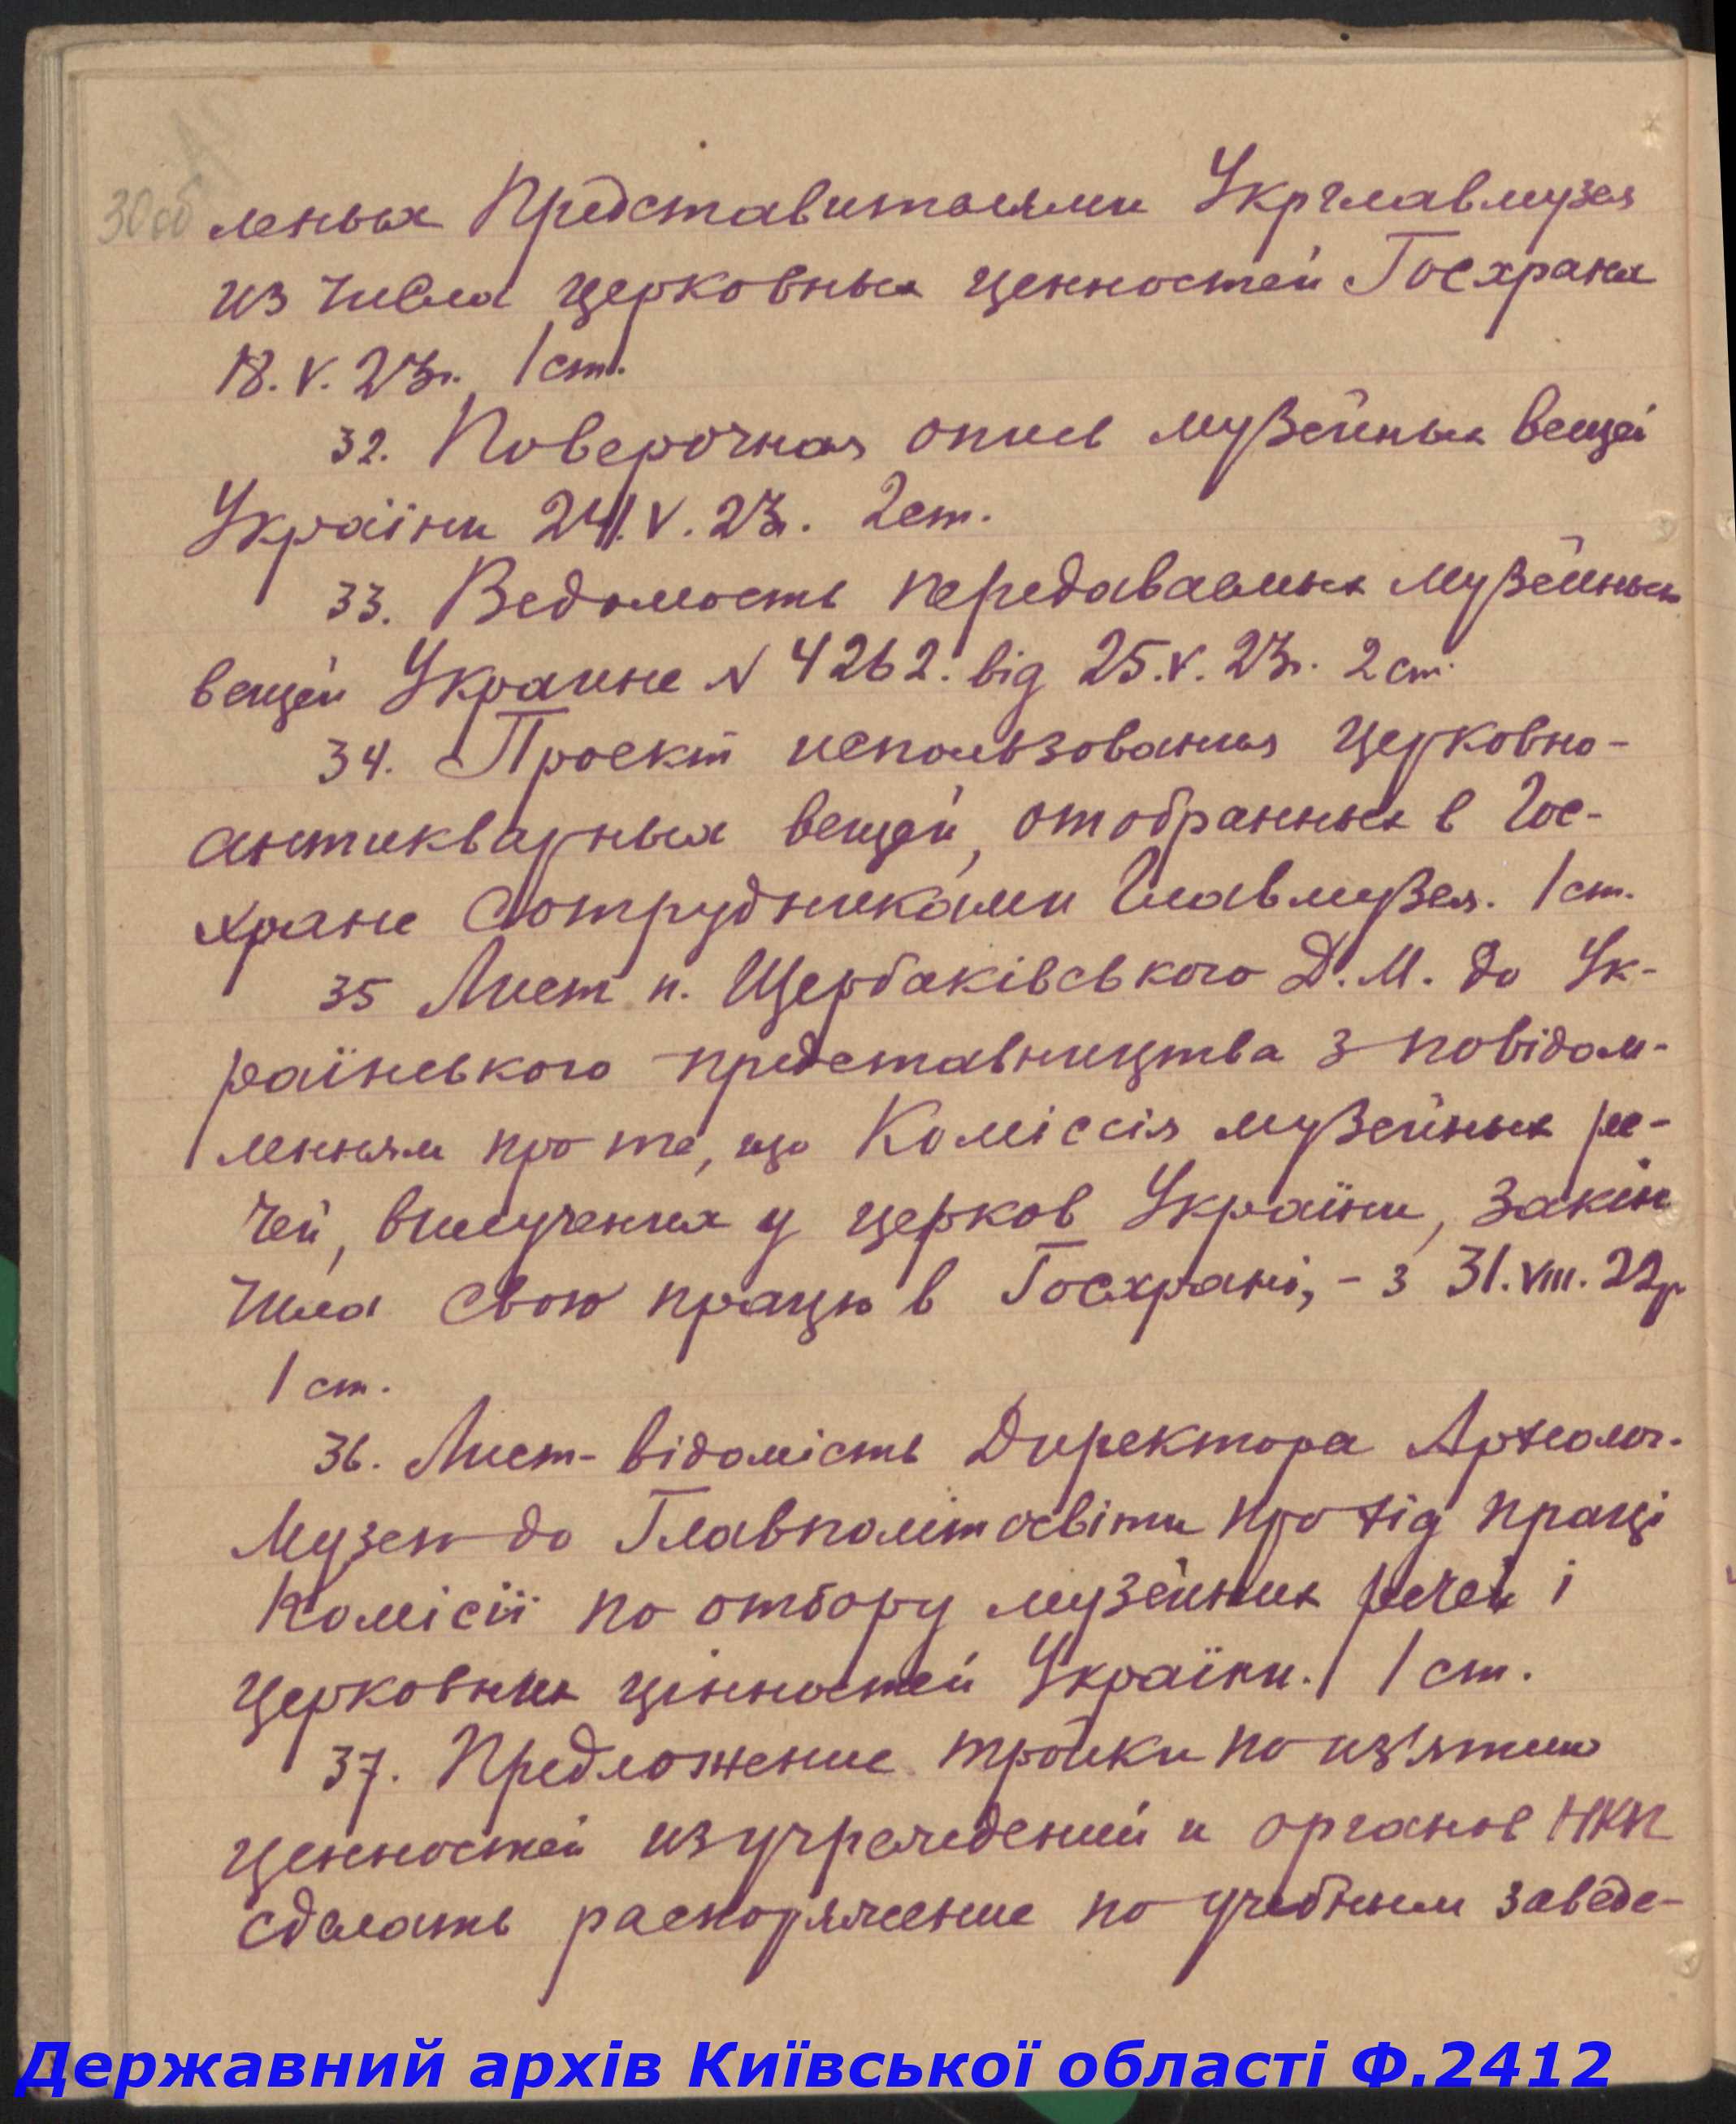 30об
леных Представителями Укрглавмузея
из числа церковных ценностей Госхрана
18.V.23г. 1 ст.
32. Поверочная опись музейных вещей
України 24.V.23г. 2 ст.
33. Ведомость передаваемых музейных
вещей Украине № 4262. від 25.V.23г. 2 ст.
34. Проект использования церковно-
антикварных вещей, отобранных в Гос-
хране сотрудниками Главмузея. 1 ст.
35 Лист п. Щербаківського Д.М. до Ук-
раїнського представництва з повідом-
ленням про те, що Коміссія музейных ре-
чей, вилучених у церков України, закін
чила свою працю в Госхрані, - з 31.VIII.22р
1 ст.
36. Лист-відомість Директора Археолог.
Музею до Главполітосвіти про хід праці
Комісії по отбору музейних речей і
церковних цінностей України. 1 ст.
37. Предложение тройки по из'ятию
ценностей из учреждений и органов НКП
сделать распоряжение по учебным заведе-
Державний архів Київської області Ф.2412